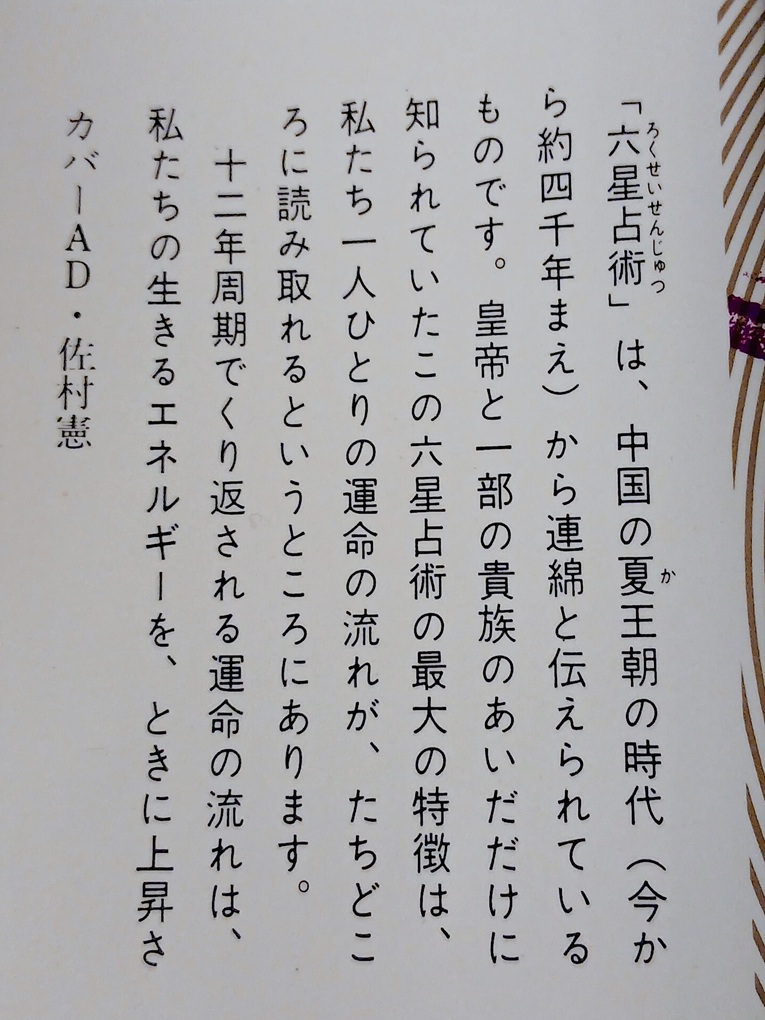 「六星占術」は、中国の夏王朝の時代（今か
ろくせいせんじゅつ
か
ら約四千年まえ）から連綿と伝えられている
ものです。皇帝と一部の貴族のあいだだけに
知られていたこの六星占術の最大の特徴は、
私たち一人ひとりの運命の流れが、たちどこ
ろに読み取れるというところにあります。
十二年周期でくり返される運命の流れは、
私たちの生きるエネルギーを、ときに上昇さ
カバーAD・佐村憲一